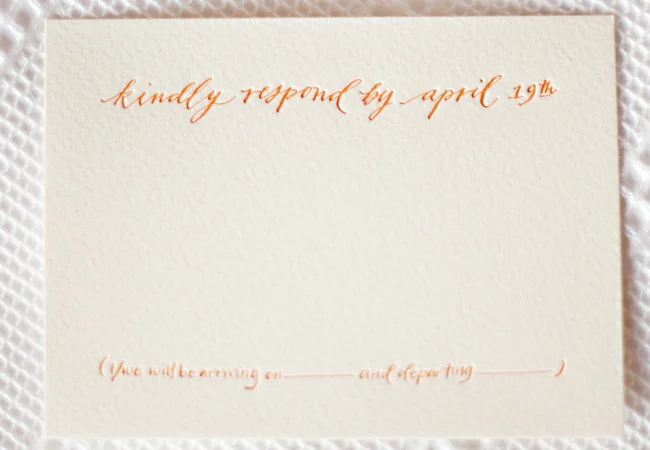 kindly respond by april 19th
(I/we will be arriving on______ and departing______)